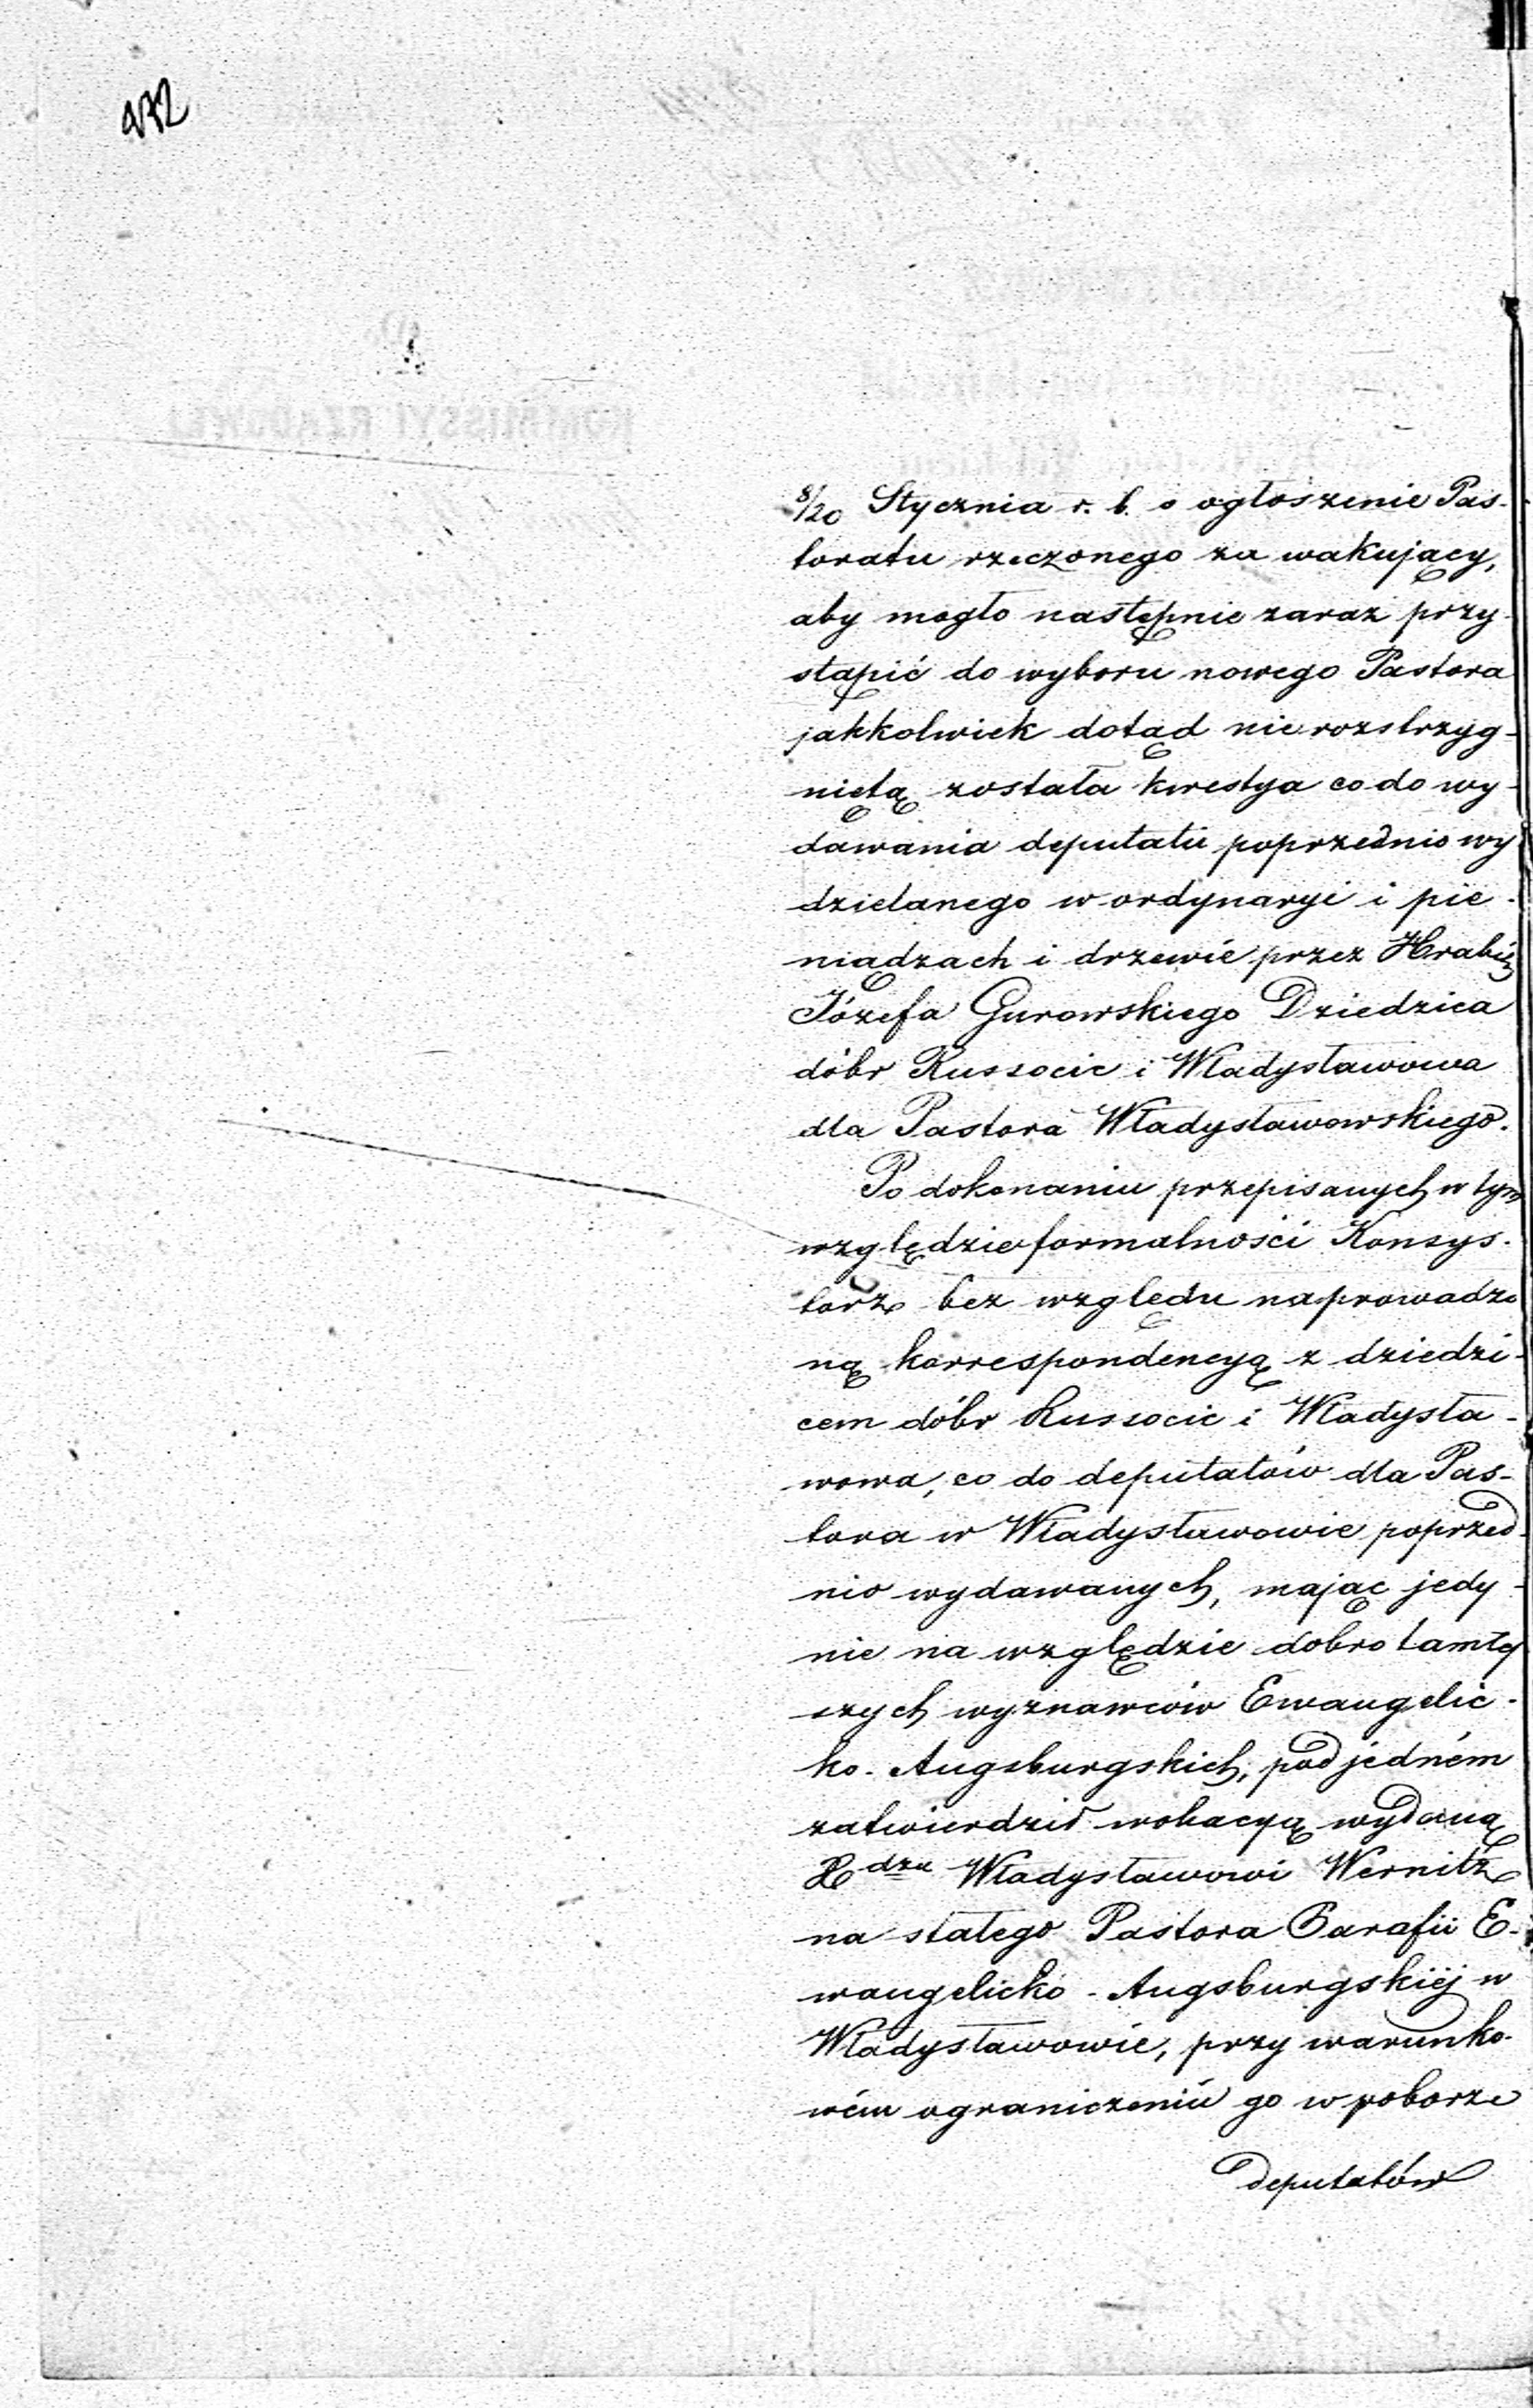 472
8/20 Stycznia r. b. o ogłoszenie Pas-
toratu rzeczonego za wakujący,
aby mogło następnie zaraz przy-
stąpić do wyboru nowego Pastora
jakkolwiek dotąd nierozstrzyg-
niętą została kwestya co do wy-
dawania deputatu poprzednio wy
dzielanego w ordynaryi i pie-
niądzach i drzewie przez Hrabię
Józefa Gurowskiego Dziedzica
dóbr Russocic i Władysławowa
dla Pastora Władysławowskiego.
Po dokonaniu przepisanych w tym
względzie formalności Konsys-
torz bez względu na prowadzo
ną korrespondencyą z dziedzi-
cem dóbr Russocic i Władysła-
wowa, co do deputatów dla Pas-
tora w Władysławowie poprzed-
nio wydawanych, mając jedy-
nie na względzie dobro tamtej
szych wyznawców Ewangelic-
ko-Augsburgskich, pod jedném
zatwierdził wokacyą wydaną
Xdzu Władysławowi Wernitz
na stałego Pastora Parafii E-
wangelicko-Augsburgskiéj w
Władysławowie, przy warunko-
wém ograniczeniu go w poborze
deputatów